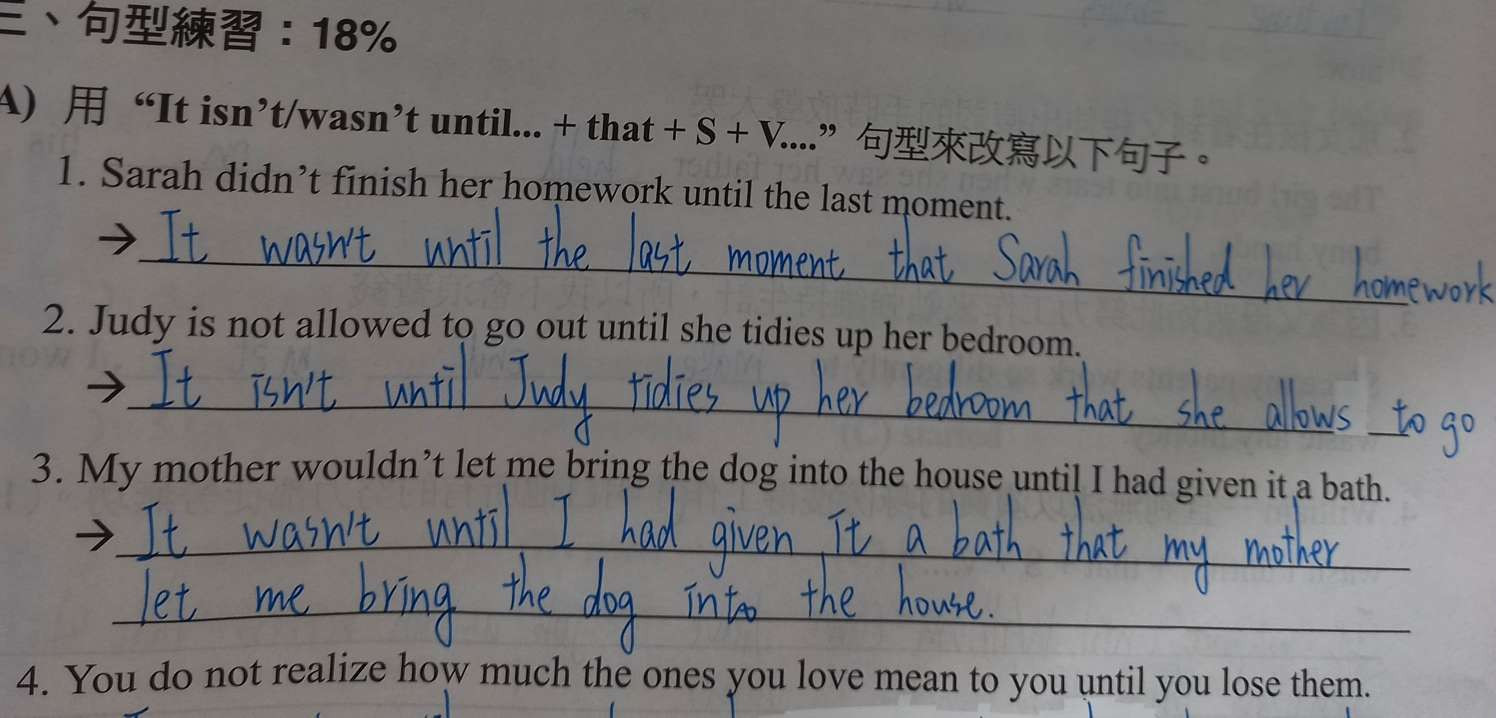 三、句型練習：18%
A) 用 “It isn’t/wasn’t until... + that + S + V....” 句型來改寫以下句子。
1. Sarah didn’t finish her homework until the last moment.
→ It wasn't until the last moment that Sarah finished her homework
2. Judy is not allowed to go out until she tidies up her bedroom.
→ It isn't until Judy tidies up her bedroom that she allows to go
3. My mother wouldn’t let me bring the dog into the house until I had given it a bath.
→ It wasn't until I had given it a bath that my mother
let me bring the dog into the house.
4. You do not realize how much the ones you love mean to you until you lose them.